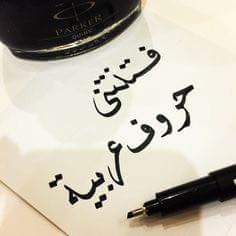 PARKER
QUINK
فتنتني
حروف عربية